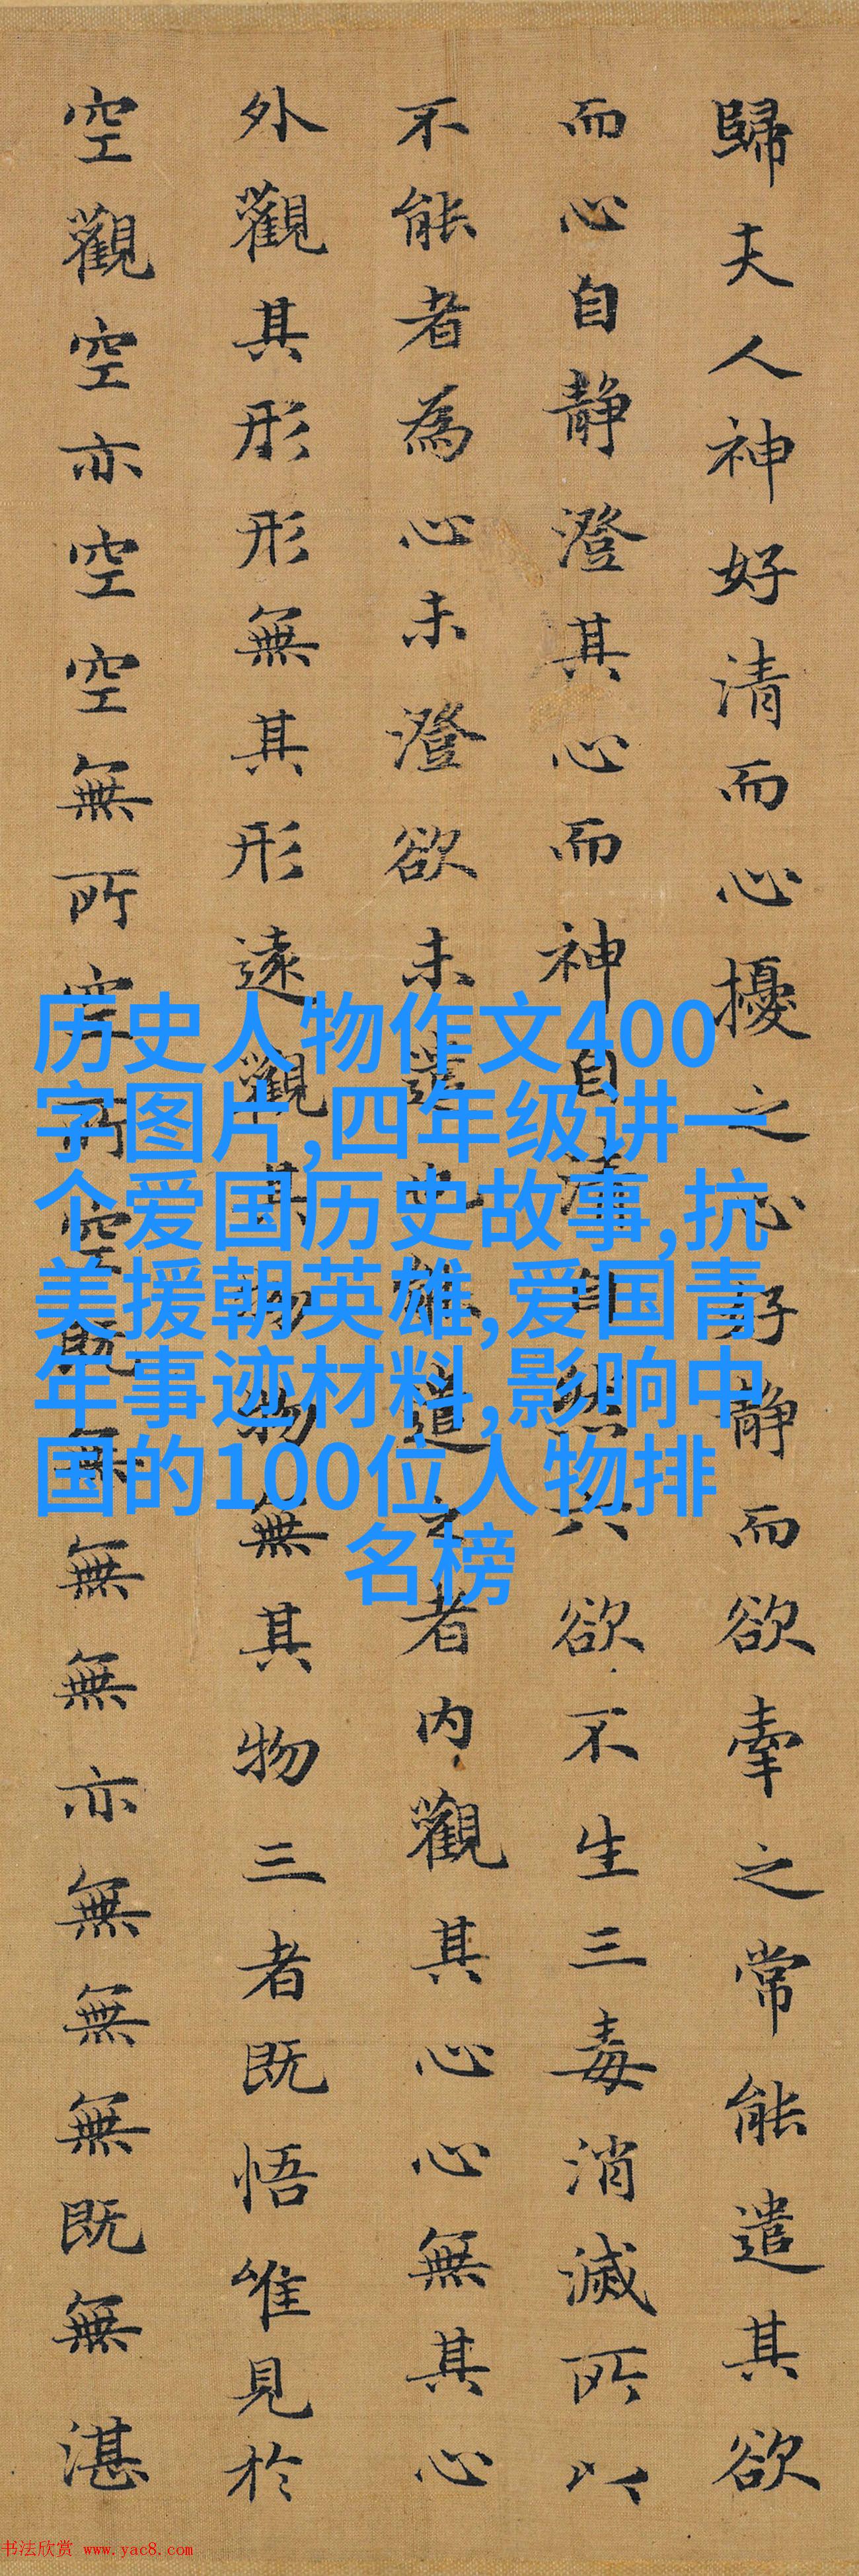 歸夫人神好清而心擾之心好静而欲牽之常能遣其欲
而心自静澄其心而神自清自然六欲不生三毒消滅所以
不能者為心未澄欲未遣也能遣之者内觀其心心無其心
外觀其形形無其形遠觀其物物無其物三者既悟唯見於
空觀空亦空空無所空所空既無無無亦無無無既無湛
历史人物作文400
字图片,四年级讲一
个爱国历史故事,抗
美援朝英雄,爱国青
年事迹材料,影响中
国的100位人物排
名榜
书法欣赏 www.yac8.com